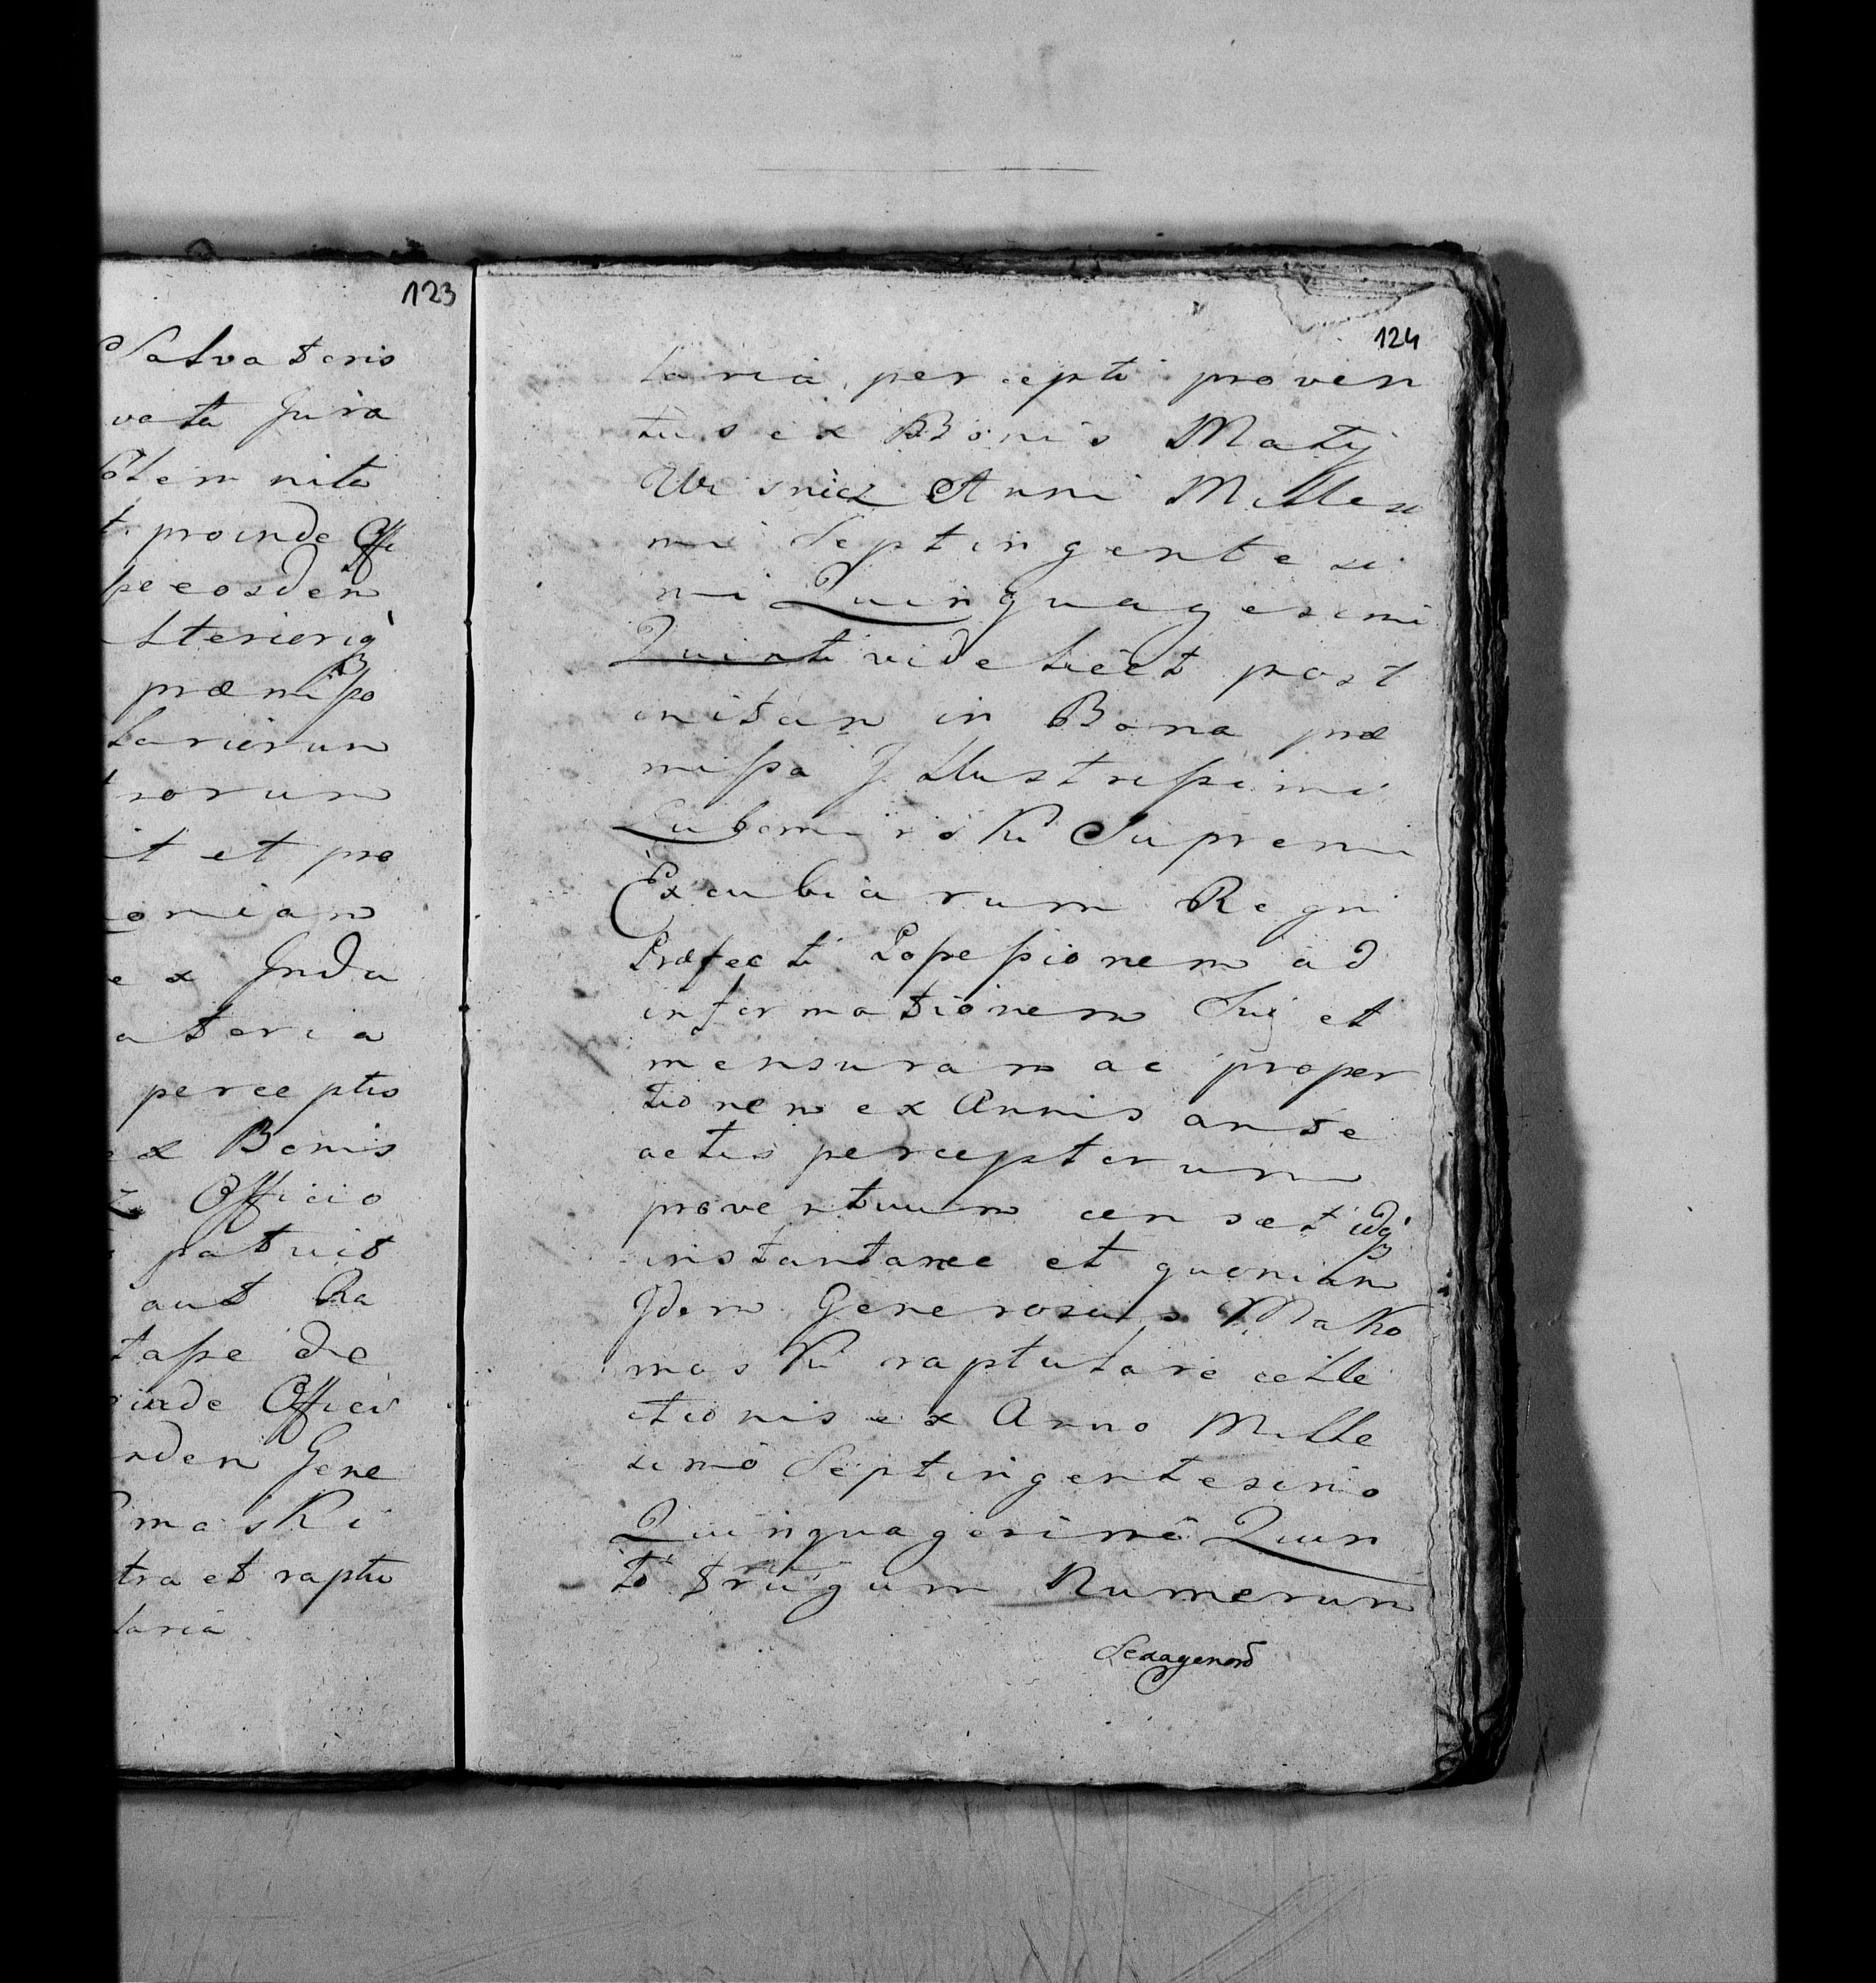 123
Salvatoris
vata Jura
olemnita
t proinde Offi
pe eosdem
lterioriq
præmisso
lariorum
rorum
it et pro
oniam
e x Indu
ateria
perceptis
ex Bonis
z Officio
patuit
aut Ra
tasse de
inde Officiũ
ndem Gene
maski
tra et raptu
laria
124
laria percepti proven
tus ex Bonis Maly
Wisnicz Anni Millesi
mi Septingentesi
mi Quinquagesimi
Quinti videlicet post
initam in Bona præ
missa Illustrissimi
Lubomirski Supremi
Excubiarum Regni
Præfecti Possessionem ad
informationem Sui et
mensuram ac propor
tionem ex Annis ante
actis perceptorum
proventuum censet idq
instantanee et quoniam
Idem Generosus Mako
maski raptulare colle
ctionis ex Anno Mille
simo Septingentesimo
Quinquagesimo Quin
to frugum Numerum
Sexagenarũ